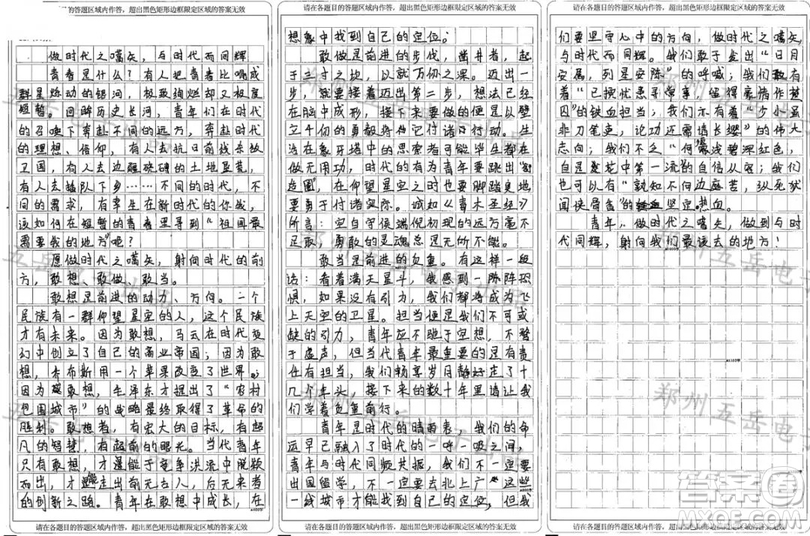 的答题区域内作答，超出黑色矩形边框限定区域的答案无效
做时代之嚆矢，与时代而同辉
青春是什么？有人把青春比喻成
群星熠动的银河，极致绚烂却又极度
短暂。回眸历史长河，青年们在时代
的召唤下奔赴不同的远方，奔赴时代
的理想、信仰，有人去抗日前线杀敌
卫国，有人去边疆硗碛的土地垦荒，
有人去插队下乡……不同的时代，不
同的需求，有幸生在新时代的你我，
该如何在短暂的青春里寻到“祖国最
需要我的地方”呢？
愿做时代之嚆矢，射向时代的前
方，敢想、敢做、敢当。
敢想是前进的动力、方向。一个
民族有一群仰望星空的人，这个民族
才有未来。因为敢想，马云在时代变
幻中创立了自己的商业帝国；因为敢
想，乔布斯用一个苹果改变了世界；
因为敢想，毛泽东才提出了“农村
包围城市”的战略最终取得了革命的
胜利。敢想者，有宏大的目标，有超
凡的智慧，有超前的眼光。当代青年
只有敢想，才能于竞争洪流中脱颖
而出，才能走出前无古人，后无来者
的创新之路。青年在敢想中成长，在
请在各题目的答题区域内作答，超出黑色矩形边框限定区域的答案无效
请在各题目的答题区域内作答，超出黑色矩形边框限定区域的答案无效
想象中找到自己的定位。
敢做是前进的步伐，凿井者，起
于三寸之坎，以就万仞之深。迈出一
步，就要接着迈出第二步，想象已经
在脑中成形，接下来要做的便是以壁
立千仞的勇毅将它付诸于行动。生
活在象牙塔中的思索者可能毕生都在
做无用功，时代的有为青年要跳出“
圈”，在仰望星空之时也要脚踏实地
更勇于付诸实际。诚如《青木王经》
所言：空自守候端倪初现的远方毫不
足取，勇敢的灵魂总是无所不能。
敢当是前进的负重。有这样一段
话：看着满天星斗，我感到一阵阵恐
惧，如果没有引力，我们都将成为飞
上天空的卫星。担当便是我们不可或
缺的引力，青年应不驰于空想，不骛
于虚声，但当代青年最重要的是有责
任有担当，我们畅享岁月静好走了十
几年车头，接下来的数十年里请让我
们学着负重前行。
青年是时代的晴雨表，我们的命
运早已融入了时代的一呼一吸之间，
青年与时代同频共振，我们不一定要
出国留学，不一定要去北上广，这些
一线城市才能找到自己的定位，但我
请在各题目的答题区域内作答，超出黑色矩形边框限定区域的答案无效
请在各题目的答题区域内作答，超出黑色矩形边框限定区域的答案无效
们要坚定心中的方向，做时代之嚆矢，
与时代而同辉。我们敢于念出“日月
安属，列星安陈”的呼喊；我们敢有
着“已摈忧患寻常事，留得豪情作楚
囚”的铁血担当；我们亦有着“少小虽
非刀笔吏，论功还需请长缨”的伟大
志向；我们不乏“何须浅碧深红色，
自是花中第一流的自信从容；我们
也可以有“孰知不向边庭苦，纵死犹
闻侠骨香”的坚定热血。
青年，做时代之嚆矢，做到与时
代同辉，射向我们最该去的地方！
请在各题目的答题区域内作答，超出黑色矩形边框限定区域的答案无效
郑州五岳电
答案圈
MXQE.COM